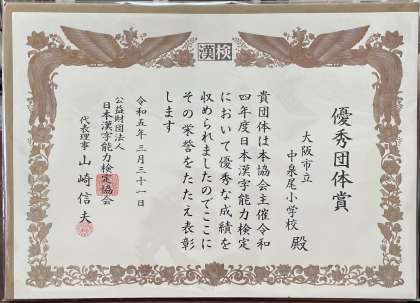 漢検
優秀団体賞
大阪市立
中泉尾小学校 殿
貴団体は本協会主催令和
四年度日本漢字能力検定
において優秀な成績を
収められましたのでここに
その栄誉をたたえ表彰
します
令和五年三月三十一日
公益財団法人
日本漢字能力検定協会
代表理事 山崎信夫